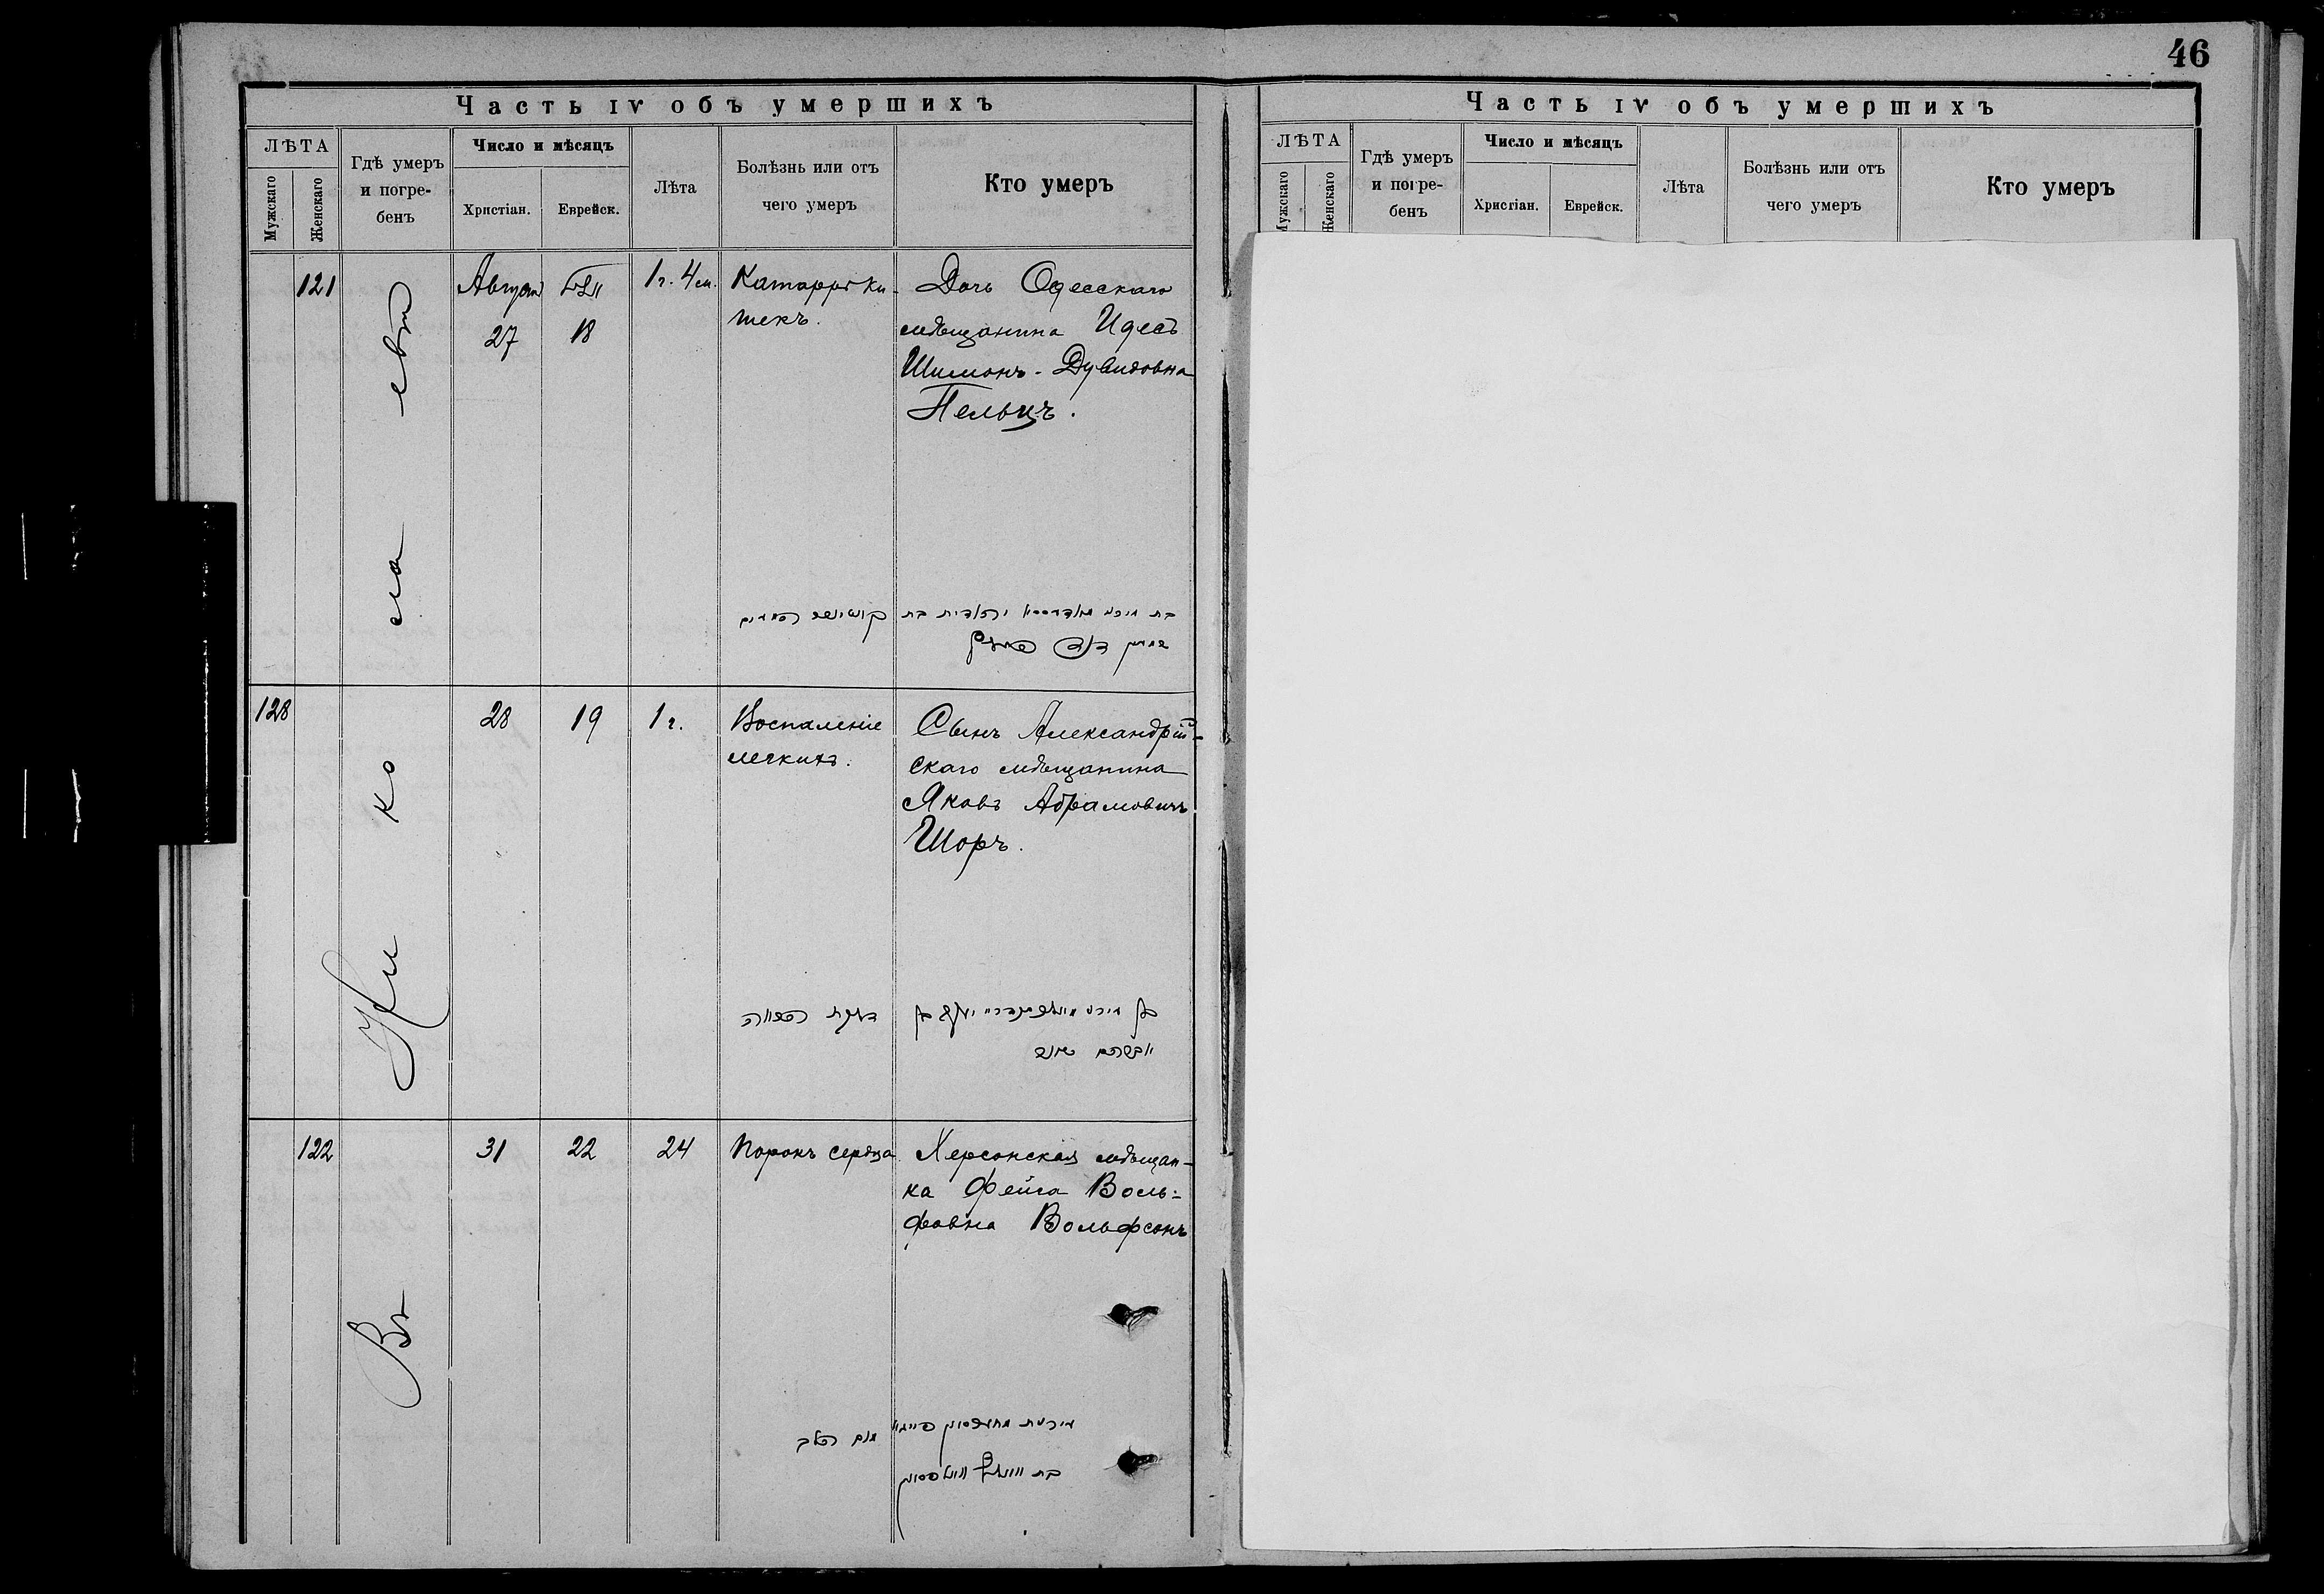 46
Часть IV объ умершихъ
ЛѢТА
Мужскаго
Женскаго
Гдѣ умеръ
и погре-
бенъ
Число и мѣсяцъ
Христіан.
Еврейск.
Лѣта
Болѣзнь или отъ
чего умеръ
Кто умеръ
121
Августъ
27
18
1 г. 4 м.
Катарръ ки-
шекъ.
Дочь Одесскаго
мѣщанина Идесъ
Шимонъ-Дувидовна
Пельцъ.
128
28
19
1 г.
Воспаленіе
легкихъ.
Сынъ Александрій-
скаго мѣщанина
Яковъ Абрамовичъ
Шоръ.
122
31
22
24
Порокъ сердца
Херсонская мѣщан-
ка Фейга Воль-
фовна Вольфсонъ
מום הלב
Въ Николаевѣ
Часть IV объ умершихъ
ЛѢТА
Мужскаго
Женскаго
Гдѣ умеръ
и погре-
бенъ
Число и мѣсяцъ
Христіан.
Еврейск.
Лѣта
Болѣзнь или отъ
чего умеръ
Кто умеръ